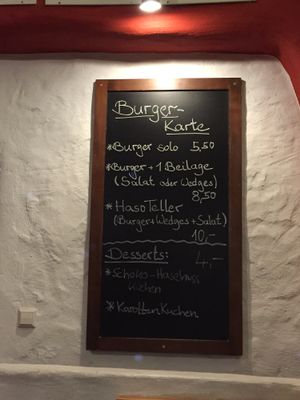 Burger-
Karte
*Burger solo 5,50
*Burger + 1 Beilage
(Salat oder Wedges)
8,50
*HasoTeller
(Burger+Wedges+Salat)
10,-
Desserts: 4,-
*Schoko-Haselnuss
Kuchen
*KarottenKuchen